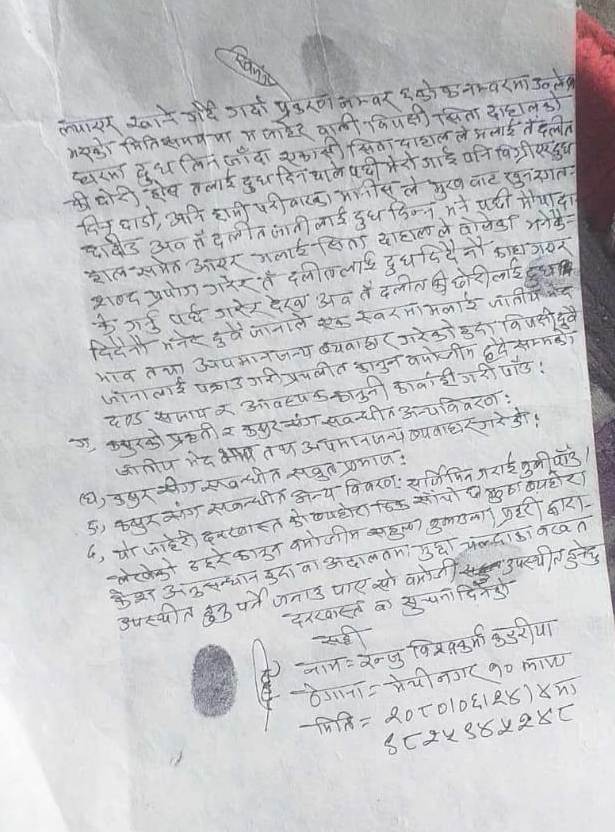 ल्याएर खाने गर्दै गर्दा प्रकरण नम्वर १ को क नम्वरमा उल्लेख
भएको मितिसमयमा म जाहेर वाली विपक्षी सिता दाहालको
घरमा दुध लिन जाँदा सिता दाहाल ले मलाई तँ दलीत
की छोरी होस तलाई दुध दिन थाले पछी मेरो गाई पनि विग्रीएर दुध
दिन छाडो, अनि हामी घरी मानीस ले मुख वाट
अव तँ दलीत जाती लाई दुध दिन्न भने पछी
समेत आएर मलाई सिता दाहालले वोलेको
शव्द प्रयोग गरेर तँ दलीतलाई दुध दिदैनौ काहा गएर
के गर्नु पर्छ गरेर देखा अव तँ दलीत की छोरीलाई दुध
दिदैनौ भनेर दुवै जानाले एक स्वरमा मलाई जातीय भेद
भाव तथा अपमानजन्य व्यवाहार गरेको हुदा विपक्षी दुवै
जनालाई पक्राउ गरी प्रचलीत कानुन वमोजीम हदै सम्मको
दण्ड सजाय र आवश्यक कानुनी कार्वाही गरी पाँउ।
ग, कसुरको प्रकृती र कसुर संग सम्वन्धीत अन्य विवरण:
जातीय भेद भाव तथा अपमानजन्य व्यवाहार गरेको।
घ, कसुर संग सम्वन्धीत सवुत प्रमाण:
ङ, कसुर संग सम्वन्धीत अन्य विवरण: गराई वुझी पाँउ।
६, यो जाहेरी दरखास्त को व्यहोरा ठिक साँचो छ झुठ्ठा व्यहोरा
लेखेको ठहरे कानुन वमोजीम सहुला वुझाउला। प्रहरी द्वारा
केश अनुसन्धान हुदा वा अदालतमा मुद्दा चल्दाका वखत
उपस्थीत हुनु पर्ने जनाउ पाए सो वमोजी उपस्थीत हुनेछु
दरखास्त वा सुचना दिनेको
सही
नाम = रन्जु विश्वकर्मा
ठेगाना = मेचीनगर १०
मिति = २०८०।०६।२४।४ मा
९८२५९४५२४८